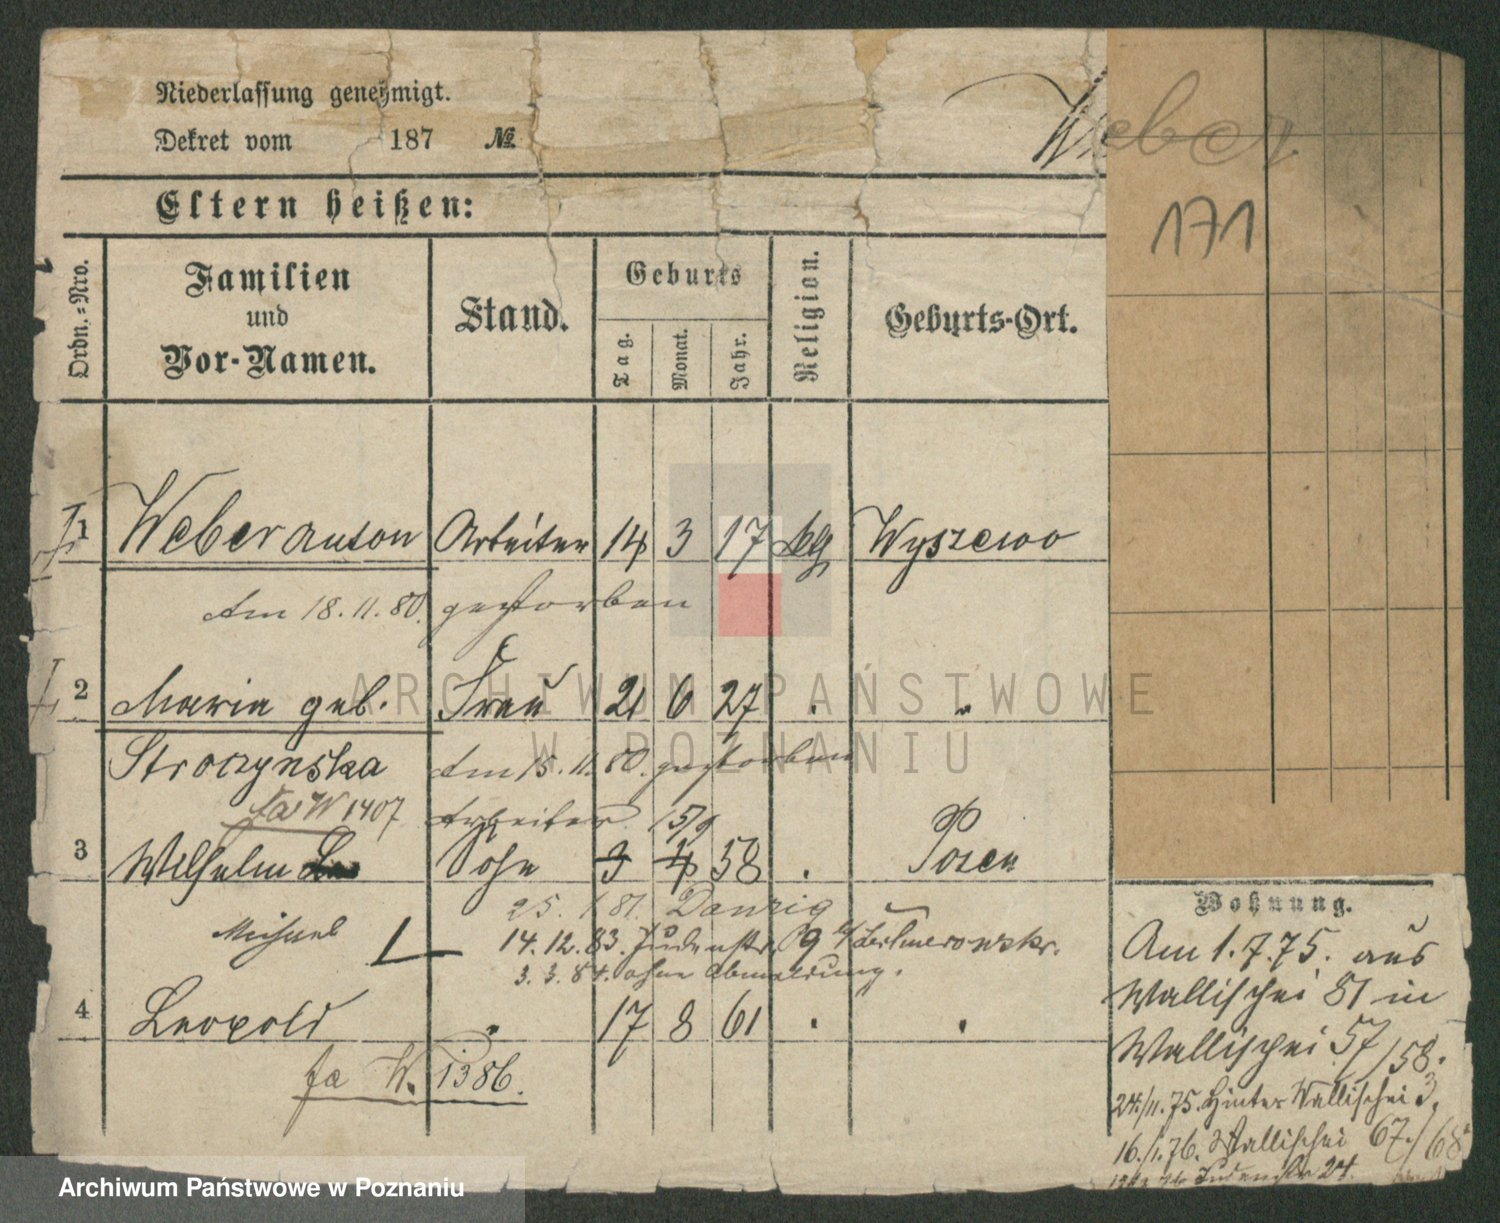 Niederlassung genehmigt.
Dekret vom 187 №
Weber
171
Eltern heißen:
Ordn.=Nro.
Familien
und
Vor-Namen.
Stand.
Geburts
Tag.
Monat.
Jahr.
Religion.
Geburts-Ort.
1 Weber Anton Arbeiter 14 3 17 kg Wyszewo
Am 18.11.80. gestorben
2 Maria geb. Frau 21 6 27 . "
Stroczynska Am 15.11.80. gestorben
fa W 1407 Arbeiter 15/9
3 Wilhelm Sohn 3 4 58 . Posen
25. 1 81. Danzig
Michael 14.12.83. Judenstr. 9
3.3.84. ohne Abmeldung.
4 Leopold " 17 8 61 . .
fa W. 1386.
Wohnung.
Am 1.7.75. aus
Wallischei 81 in
Wallischei 57/58.
24./11.75. Hinter Wallischei 3.
16./1.76. Wallischei 67./68
Judenstr 24.
ARCHIWUM PAŃSTWOWE
W POZNANIU
Archiwum Państwowe w Poznaniu